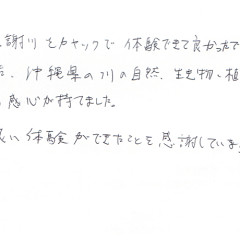 謝川をカヤックで体験できて良かったで
、沖縄県の川の自然、生き物、植
感心が持てました。
良い体験ができたことを感謝していま